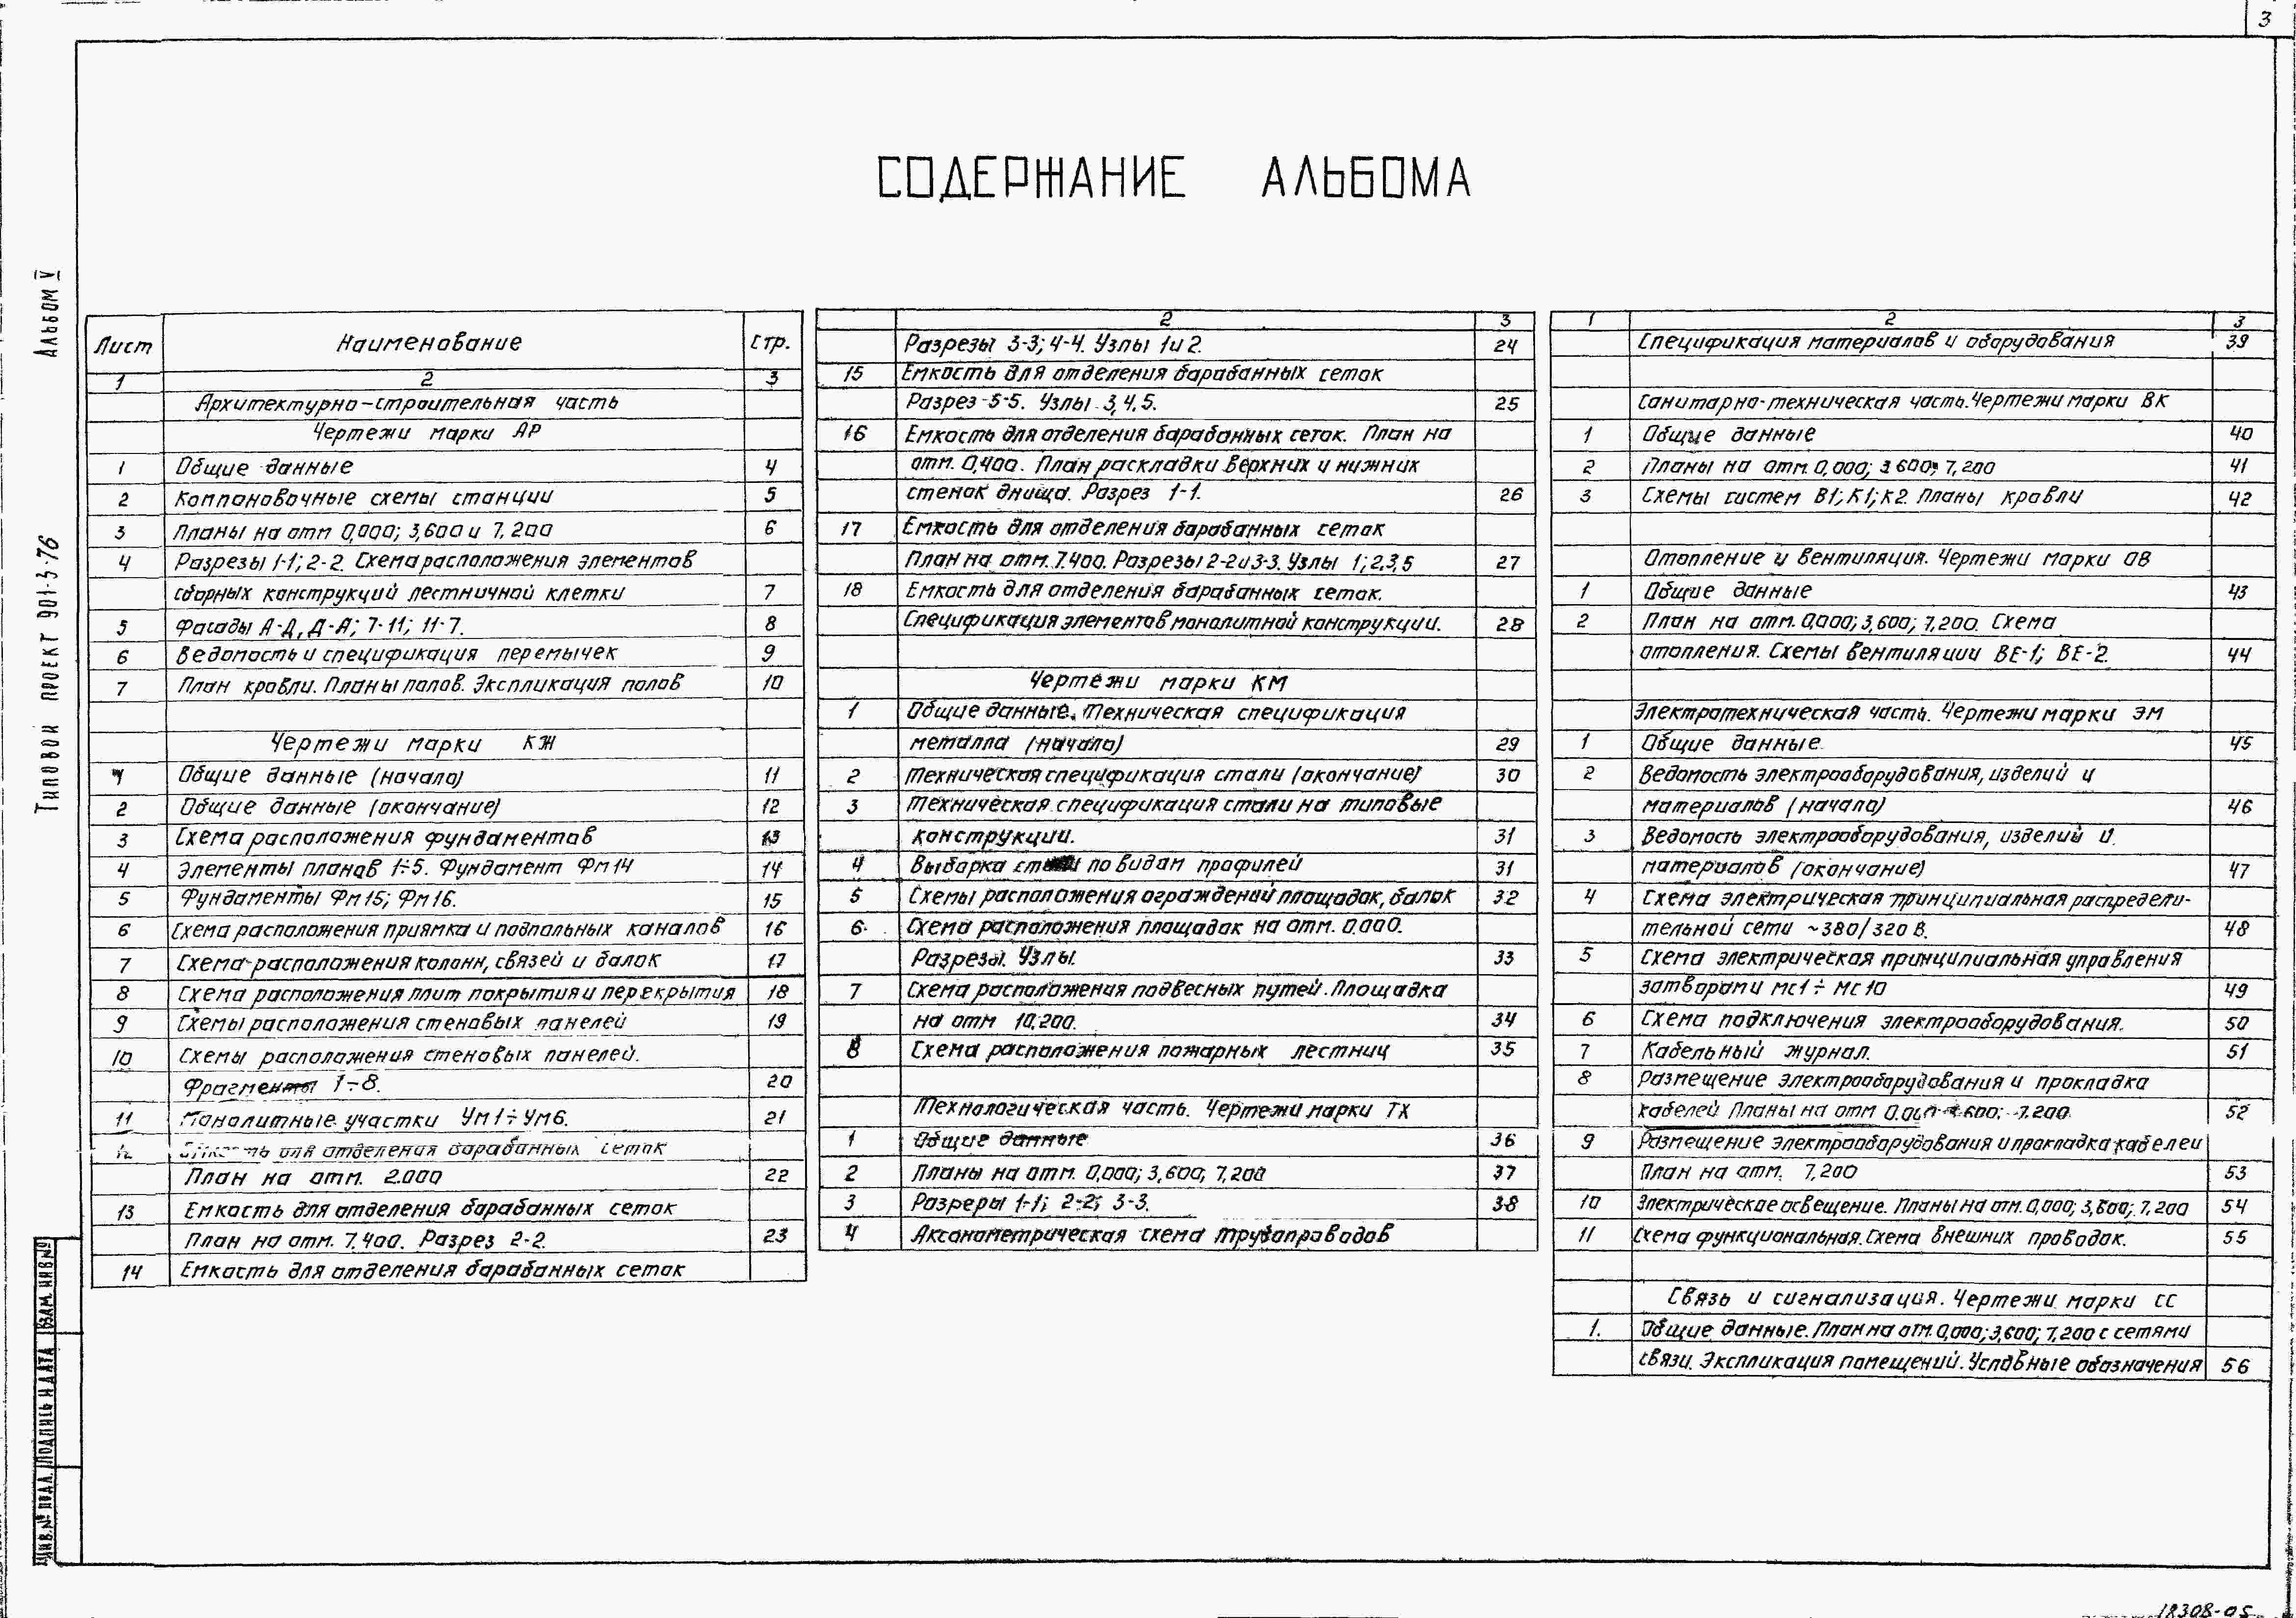 3
СОДЕРЖАНИЕ АЛЬБОМА
Альбом V
Типовой проект 901-3-76
Лист Наименование Стр.
1 2 3
Архитектурно-строительная часть
Чертежи марки АР
1 Общие данные 4
2 Компановочные схемы станции 5
3 Планы на отм 0,000; 3,600 и 7,200 6
4 Разрезы 1-1; 2-2. Схема расположения элементов
сборных конструкций лестничной клетки 7
5 Фасады А-Д, Д-А; 7-11; 11-7. 8
6 Ведомость и спецификация перемычек 9
7 План кровли. Планы полов. Экспликация полов 10
Чертежи марки КЖ
1 Общие данные (начало) 11
2 Общие данные (окончание) 12
3 Схема расположения фундаментов 13
4 Элементы планов 1÷5. Фундамент Фм14 14
5 Фундаменты Фм15; Фм16. 15
6 Схема расположения приямка и подпольных каналов 16
7 Схема расположения колонн, связей и балок 17
8 Схема расположения плит покрытия и перекрытия 18
9 Схемы расположения стеновых панелей 19
10 Схемы расположения стеновых панелей.
Фрагменты 1÷8. 20
11 Монолитные участки Ум1÷Ум6. 21
12 Емкость для отделения барабанных сеток
План на отм. 2.000 22
13 Емкость для отделения барабанных сеток
План на отм. 7.400. Разрез 2-2. 23
14 Емкость для отделения барабанных сеток
2 3
Разрезы 3-3; 4-4. Узлы 1 и 2. 24
15 Емкость для отделения барабанных сеток
Разрез 5-5. Узлы 3, 4, 5. 25
16 Емкость для отделения барабанных сеток. План на
отм. 0,400. План раскладки верхних и нижних
стенок днища. Разрез 1-1. 26
17 Емкость для отделения барабанных сеток
План на отм. 7.400. Разрезы 2-2 и 3-3. Узлы 1; 2,3,5 27
18 Емкость для отделения барабанных сеток.
Спецификация элементов монолитной конструкции. 28
Чертежи марки КМ
1 Общие данные. Техническая спецификация
металла (начало) 29
2 Техническая спецификация стали (окончание) 30
3 Техническая спецификация стали на типовые
конструкции. 31
4 Выборка стали по видам профилей 31
5 Схемы расположения ограждений площадок, балок 32
6 Схема расположения площадок на отм. 0.000.
Разрезы. Узлы. 33
7 Схема расположения подвесных путей. Площадка
на отм 10,200. 34
8 Схема расположения пожарных лестниц 35
Технологическая часть. Чертежи марки ТХ
1 Общие данные 36
2 Планы на отм. 0,000; 3,600; 7,200 37
3 Разреры 1-1; 2-2; 3-3. 38
4 Аксонометрическая схема трубопроводов
1 2 3
Спецификация материалов и оборудования 39
Санитарно-техническая часть. Чертежи марки ВК
1 Общие данные 40
2 Планы на отм. 0,000; 3.600; 7,200 41
3 Схемы систем В1; К1; К2. Планы кровли 42
Отопление и вентиляция. Чертежи марки ОВ
1 Общие данные 43
2 План на отм. 0,000; 3,600; 7,200. Схема
отопления. Схемы вентиляции ВЕ-1; ВЕ-2. 44
Электротехническая часть. Чертежи марки ЭМ
1 Общие данные. 45
2 Ведомость электрооборудования, изделий и
материалов (начало) 46
3 Ведомость электрооборудования, изделий и
материалов (окончание) 47
4 Схема электрическая принципиальная распредели-
тельной сети ~380/320 В. 48
5 Схема электрическая принципиальная управления
затворами МС1÷МС10 49
6 Схема подключения электрооборудования. 50
7 Кабельный журнал. 51
8 Размещение электрооборудования и прокладка
кабелей Планы на отм 7.200. 52
9 Размещение электрооборудования и прокладка кабелей
План на отм. 7,200 53
10 Электрическое освещение. Планы на отм. 0,000; 3,600; 7,200 54
11 Схема функциональная. Схема внешних проводок. 55
Связь и сигнализация. Чертежи марки СС
1. Общие данные. План на отм. 0,000; 3,600; 7,200 с сетями
связи. Экспликация помещений. Условные обозначения 56
Инв.№ подл. Подпись и дата Взам. инв.№
18308-05